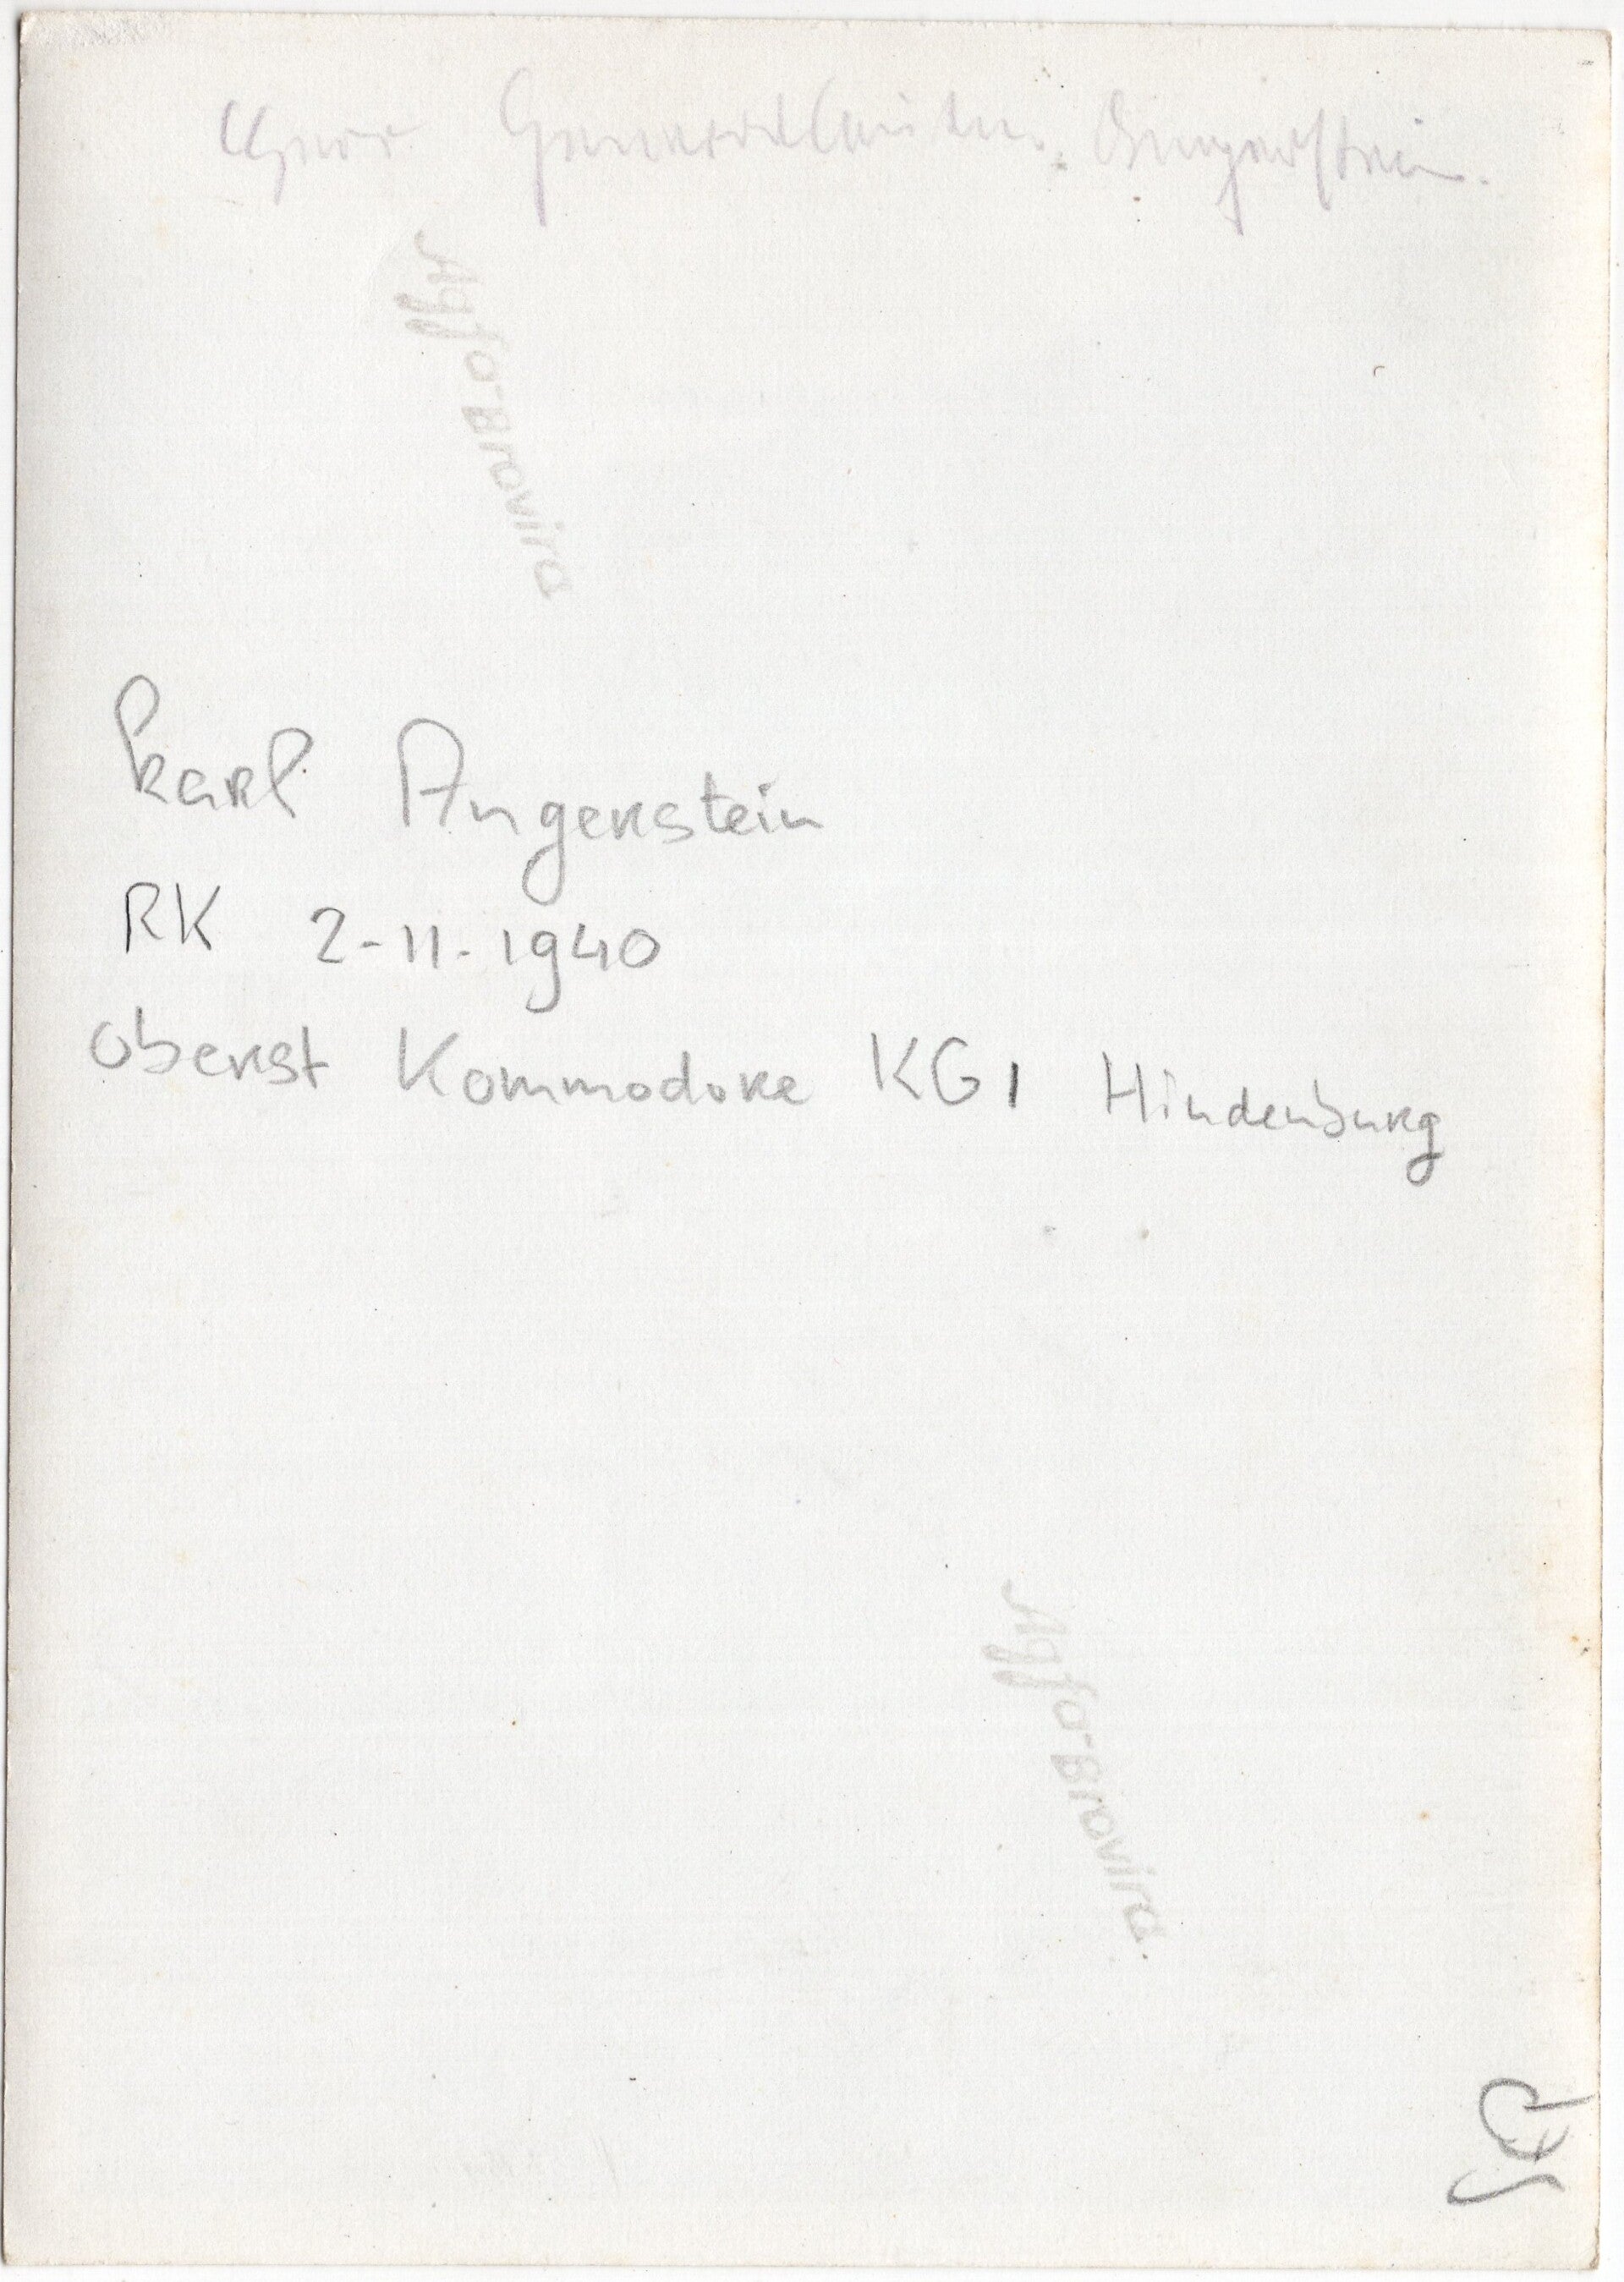 Herr Generalleutn. Angerstein.
Agfa-Brovira
Karl Angerstein
RK 2-11-1940
Oberst Kommodore KG1 Hindenburg
Agfa-Brovira